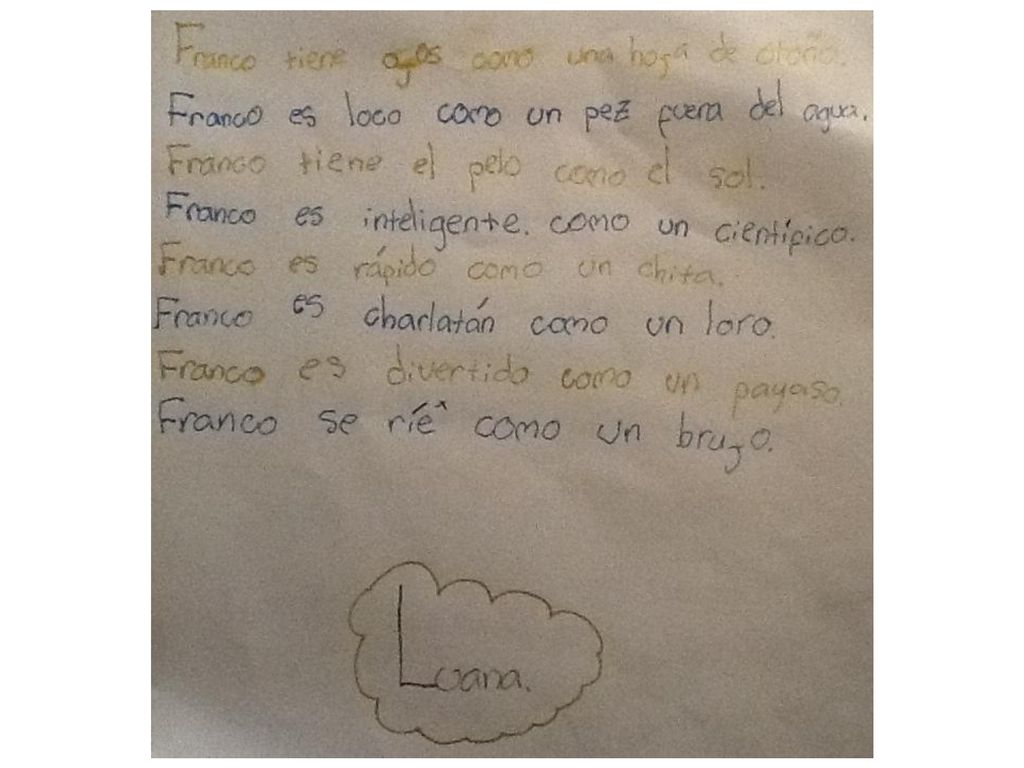 Franco tiene ojos como una hoja de otoño.
Franco es loco como un pez fuera del agua.
Franco tiene el pelo como el sol.
Franco es inteligente. como un científico.
Franco es rápido como un chita.
Franco es charlatán como un loro.
Franco es divertido como un payaso.
Franco se ríe como un brujo.
Luana.